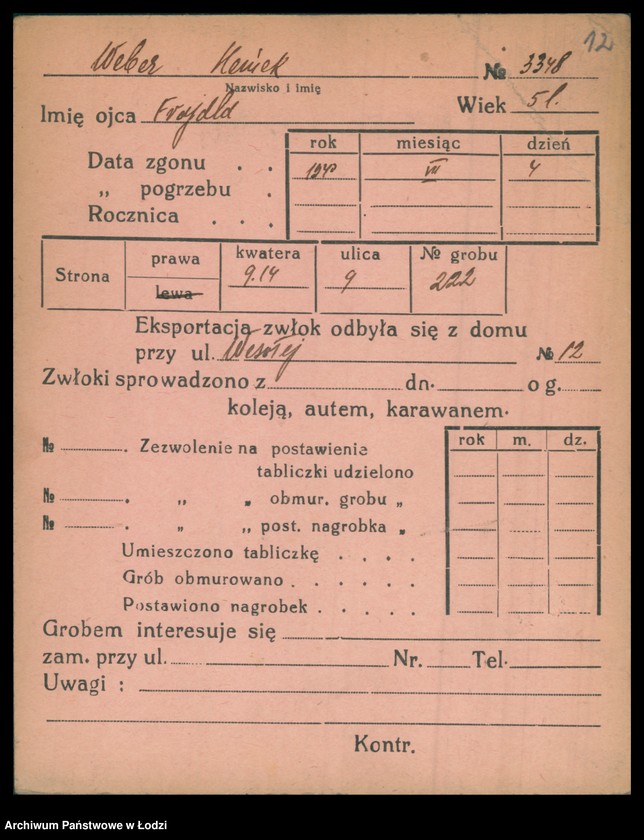 12
Weber Heniek № 3348
Nazwisko i imię
Imię ojca Frajdla Wiek 5 l.
rok miesiąc dzień
Data zgonu . . 1940 VII 4
„ pogrzebu .
Rocznica . . .
Strona prawa kwatera ulica № grobu
lewa 9.14 9 222
Eksportacja zwłok odbyła się z domu
przy ul. Wesołej № 12
Zwłoki sprowadzono z dn. o g.
koleją, autem, karawanem.
rok m. dz.
№ . Zezwolenie na postawienie
tabliczki udzielono
№ . „ „ obmur. grobu „
№ . „ „ post. nagrobka „
Umieszczono tabliczkę . . . .
Grób obmurowano . . . . . .
Postawiono nagrobek . . . . .
Grobem interesuje się
zam. przy ul. Nr. Tel.
Uwagi :
Kontr.
Archiwum Państwowe w Łodzi